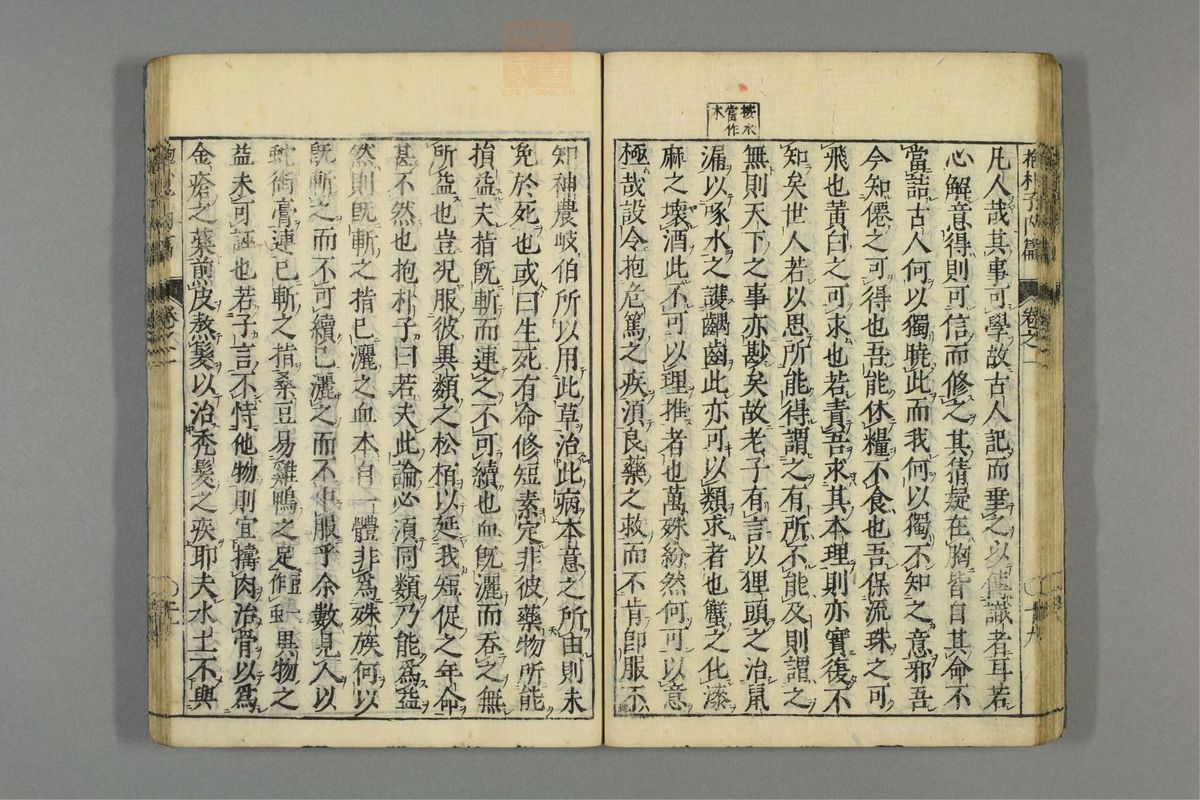 按水
當作
木
抱朴子內篇 卷之一
凡人哉其事可學故古人記而垂之以傳識者耳若
心解意得則可信而修之其猜疑在胸皆自其命不
當詰古人何以獨曉此而我何以獨不知之意邪吾
今知僊之可得也吾能休糧不食也吾保流珠之可
飛也黃白之可求也若責吾求其本理則亦實復不
知矣世人若以思所能得謂之有所不能及則謂之
無則天下之事亦尠矣故老子有言以狸頭之治鼠
漏以啄水之護齲齒此亦可以類求者也蟹之化漆
麻之壞酒此不可以理推者也萬殊紛然何可以意
極哉設令抱危篤之疾須良藥之救而不肯即服不
知神農岐伯所以用此草治此病本意之所由則未
免於死也或曰生死有命修短素定非彼藥物所能
損益夫指既斬而連之不可續也血既灑而吞之無
所益也豈況服彼異類之松栢以延我短促之年命
甚不然也抱朴子曰若夫此論必須同類乃能爲益
然則既斬之指已灑之血本自一體非爲殊族何以
既斬之而不可續已灑之而不中服乎余數見人以
蛇銜膏連已斬之指桑豆易雞鴨之足作蝱異物之
益未可誣也若子言不恃他物則宜擣肉治骨以爲
金瘡之藥煎皮熬髮以治禿髮之疾耶夫水土不與
抱朴子內篇 卷之一